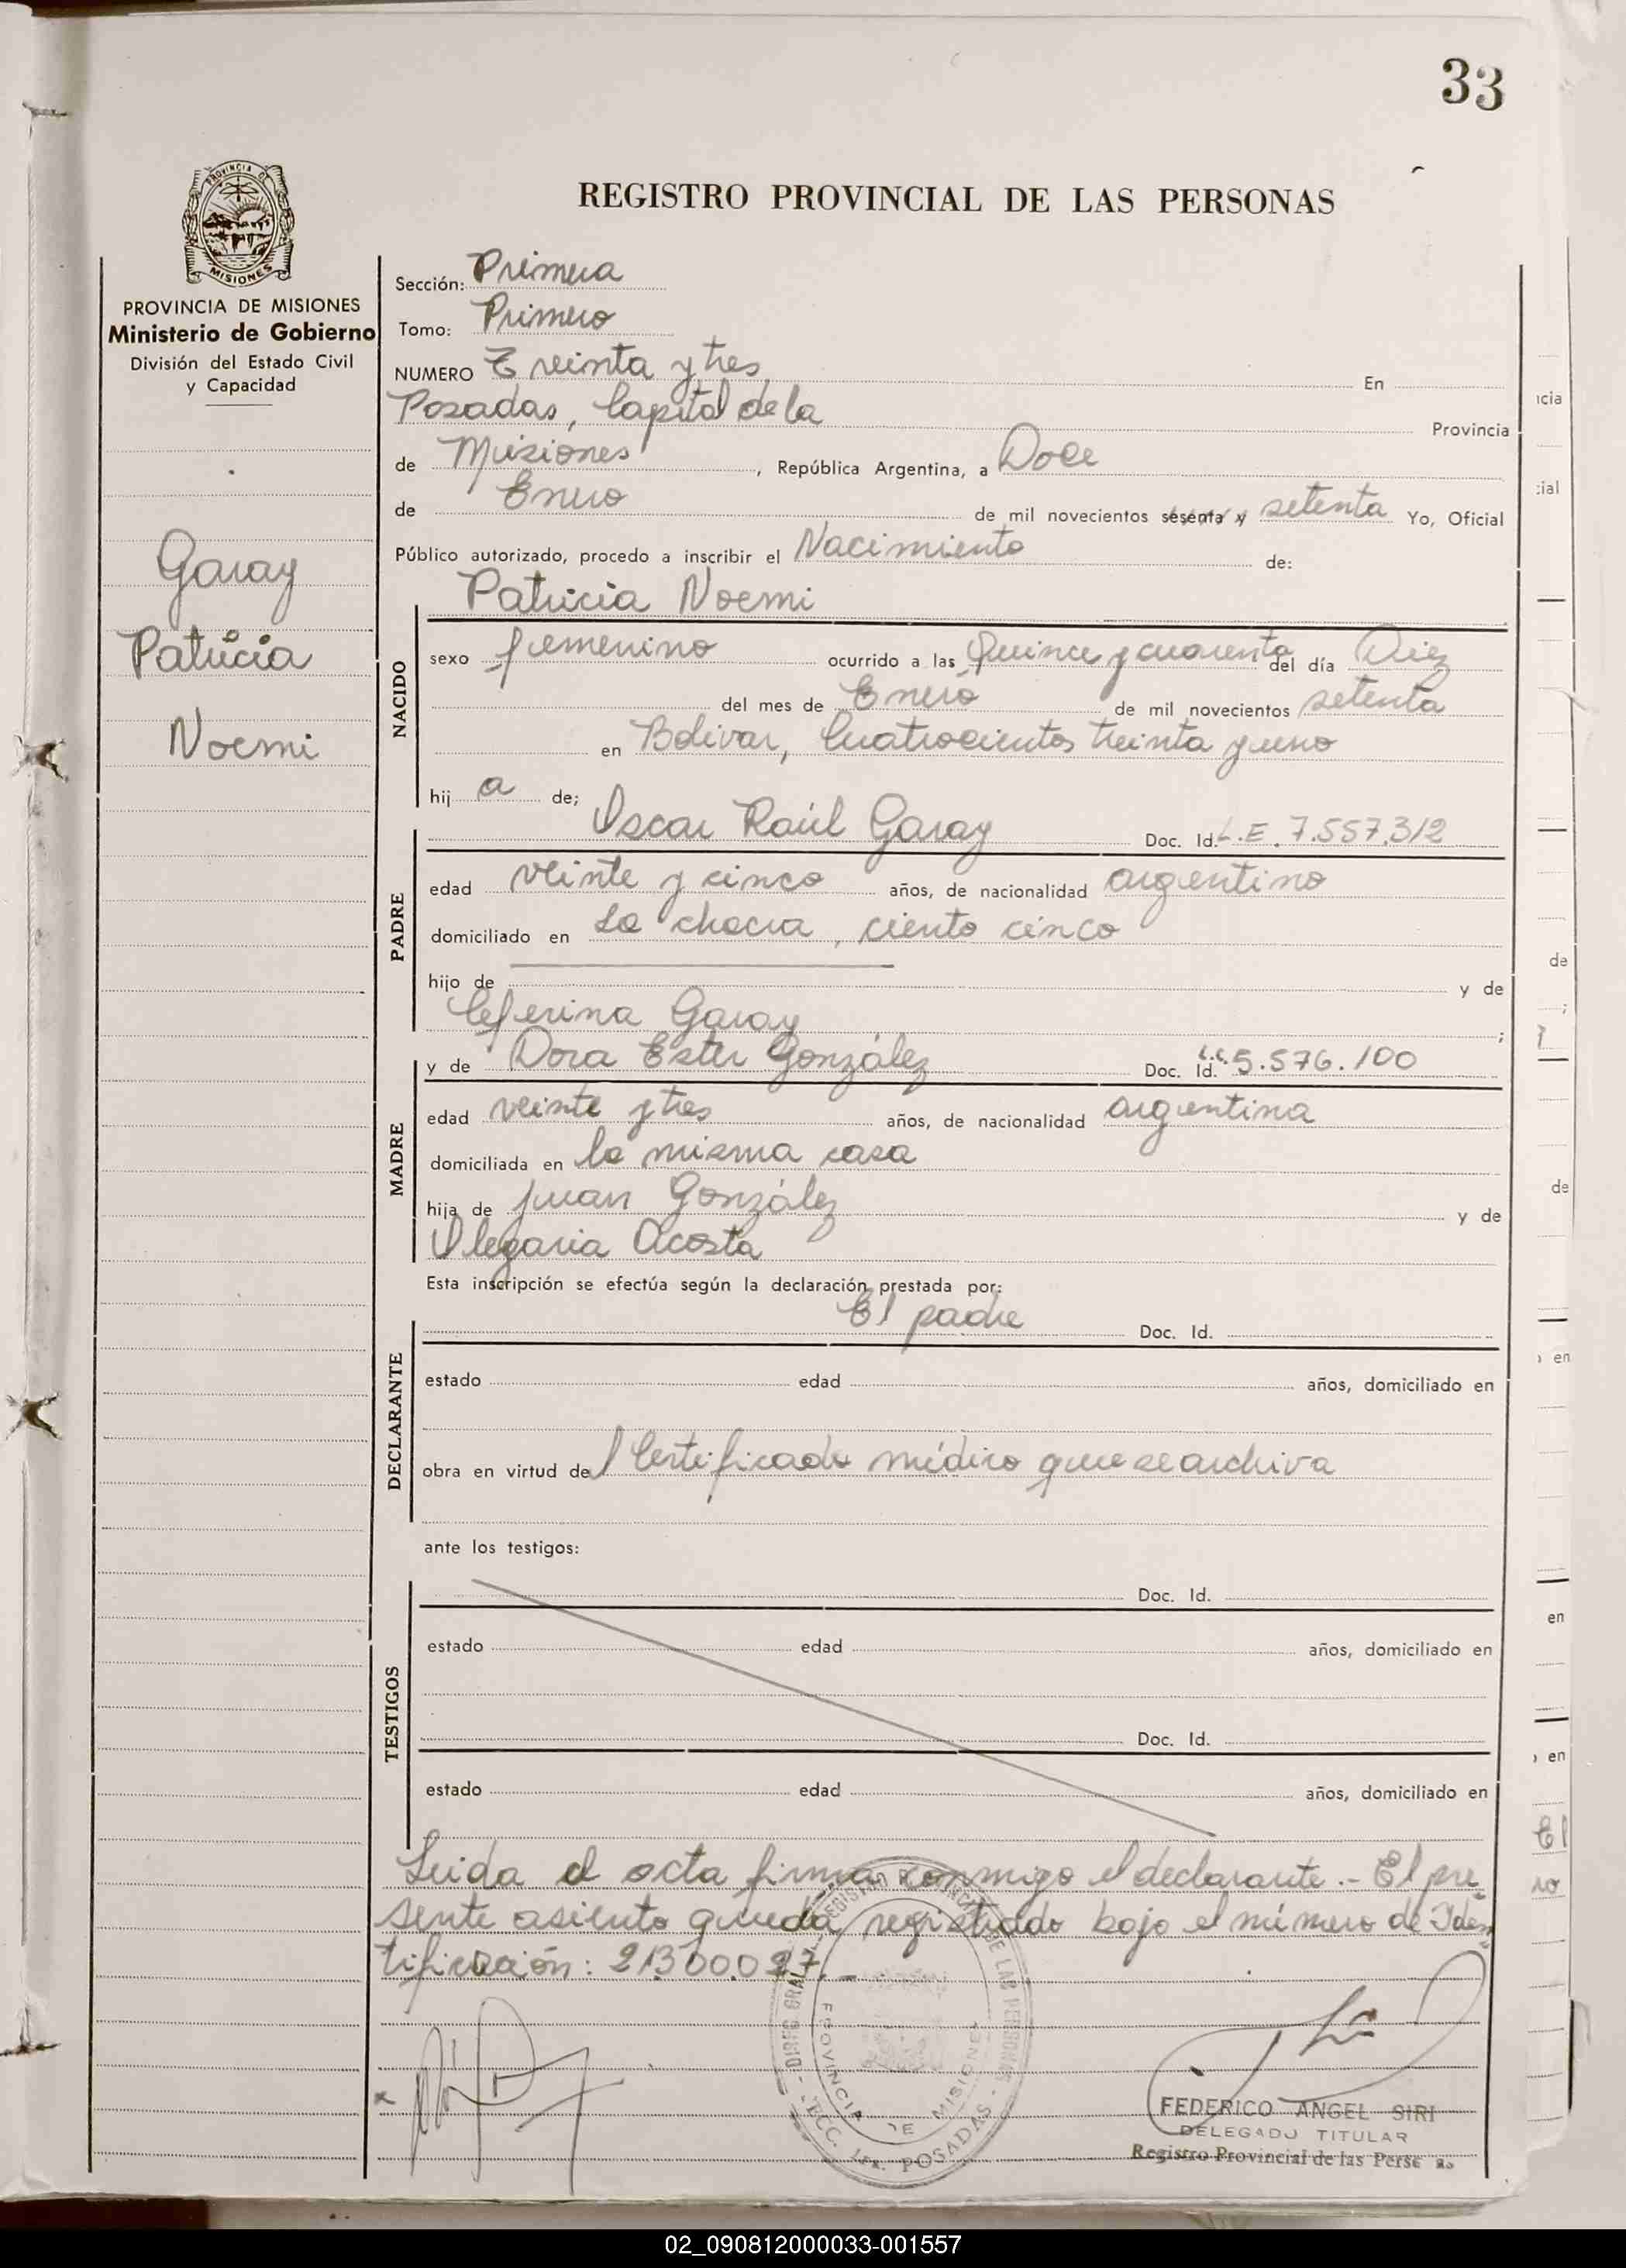 33
REGISTRO PROVINCIAL DE LAS PERSONAS
PROVINCIA DE
MISIONES
PROVINCIA DE MISIONES
Ministerio de Gobierno
División del Estado Civil
y Capacidad
Garay
Patricia
Noemi
Sección: Primera
Tomo: Primero
NUMERO Treinta y tres En
Posadas, Capital de la Provincia
de Misiones, República Argentina, a Doce
de Enero de mil novecientos sesenta y setenta Yo, Oficial
Público autorizado, procedo a inscribir el Nacimiento de:
Patricia Noemi
NACIDO
sexo femenino ocurrido a las Quince y cuarenta del día Diez
del mes de Enero de mil novecientos setenta
en Bolivar, Cuatrocientos treinta y uno
hij a de;
Oscar Raúl Garay Doc. Id. L.E. 7.557.312
PADRE
edad veinte y cinco años, de nacionalidad argentino
domiciliado en La chacra, ciento cinco
hijo de y de
Ceferina Garay ;
y de Dora Ester González Doc. Id. L.C. 5.576.100
MADRE
edad veinte y tres años, de nacionalidad argentina
domiciliada en la misma casa
hija de Juan González y de
Olegaria Acosta
Esta inscripción se efectúa según la declaración prestada por:
El padre Doc. Id.
DECLARANTE
estado edad años, domiciliado en
obra en virtud del Certificado médico que se archiva
ante los testigos:
Doc. Id.
TESTIGOS
estado edad años, domiciliado en
Doc. Id.
estado edad años, domiciliado en
Leida el acta firma conmigo el declarante.- El pre-
sente asiento queda registrado bajo el número de Iden-
tificación: 21.300.027.-
PROVINCIA DE MISIONES
POSADAS
FEDERICO ANGEL SIRI
DELEGADO TITULAR
Registro Provincial de las Perse as
02_090812000033-001557